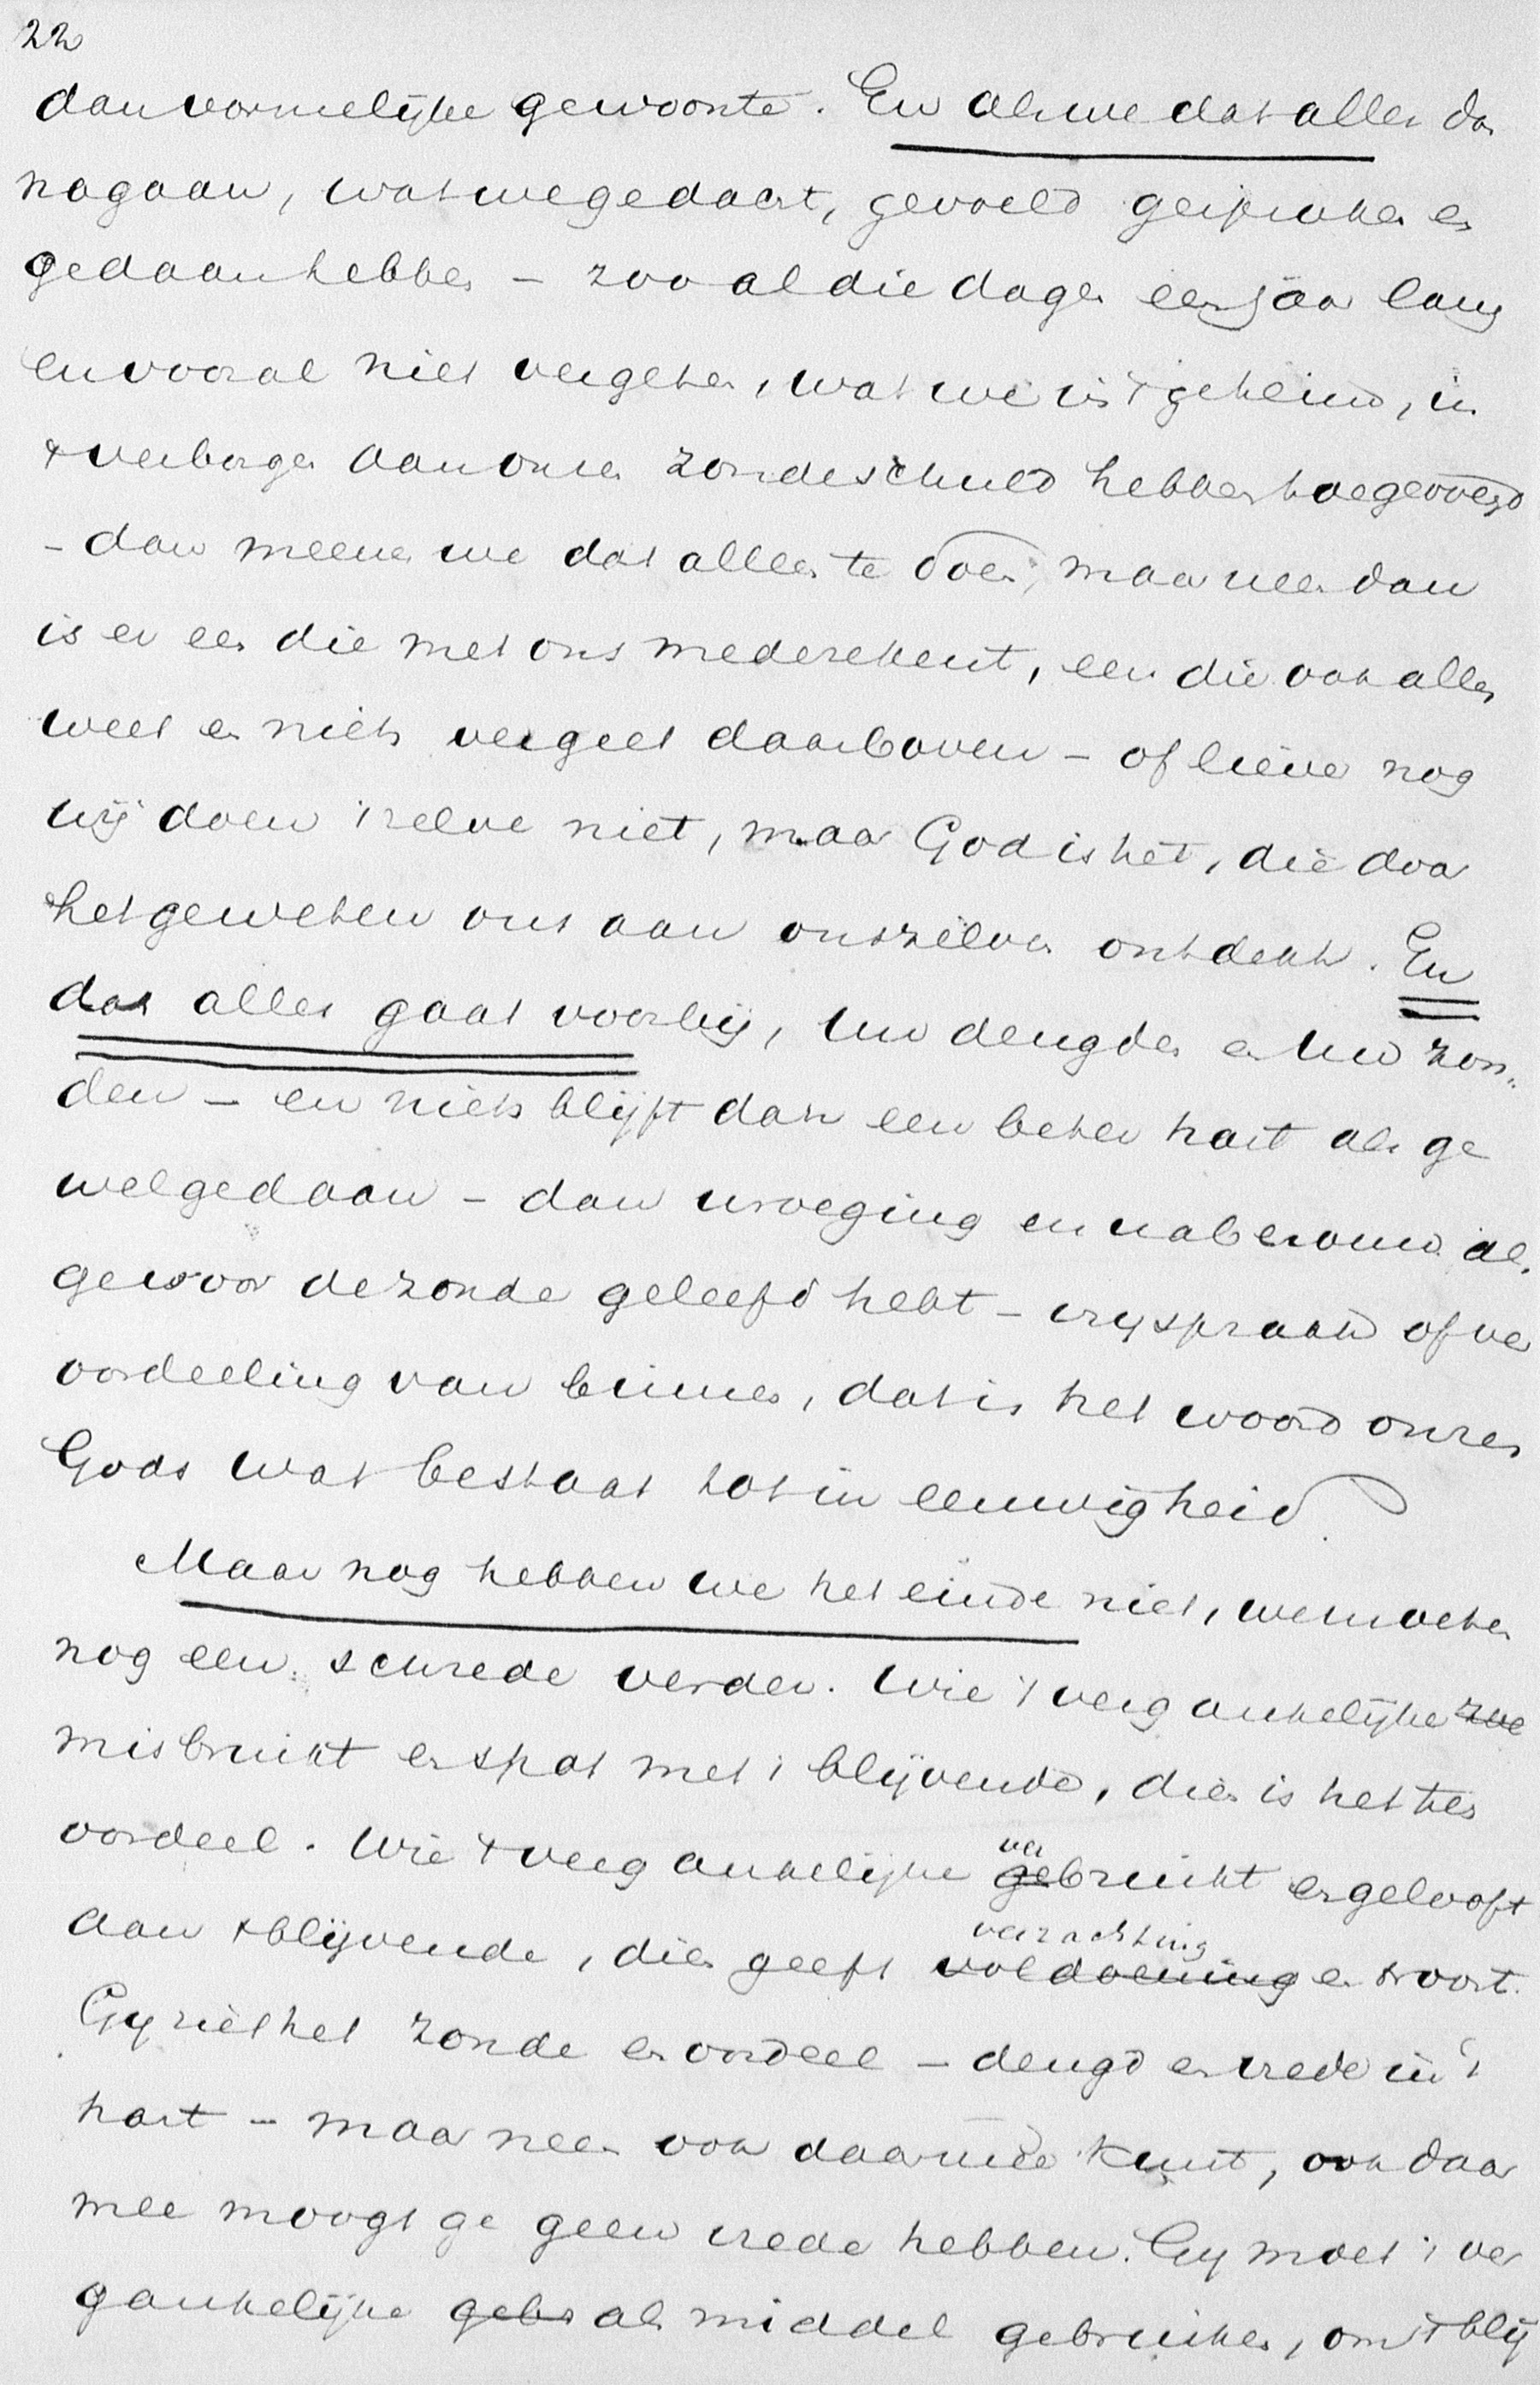 22
dan vormelijke gewoonte. En als we dat alles dan
nagaan, wat we gedacht, gevoeld gesproken en
gedaan hebben – zoo al die dagen een jaar lang
en vooral niet vergeten, wat we in 't geheim, in
't verborgen aan onze zondeschuld hebben toegevoegd
– dan meenen we dat alleen te doen, maar neen dan
is er een die met ons mederekent, een die ook alles
weet en niets vergeet daarboven – of liever nog
wij doen 't zelve niet, maar God is het, die door
het geweten ons aan onszelven ontdekt. En
dat alles gaat voorbij, uw deugden en uw zon-
den – en niets blijft dan een beter hart als ge
welgedaan – dan wroeging en naberouw als
ge voor de zonde geleefd hebt – vryspraak of ver
oordeeling van binnen, dat is het woord onzes
Gods wat bestaat tot in eeuwigheid.
Maar nog hebben we het einde niet, we moeten
nog een schrede verder. Wie 't vergankelijke
misbruikt en spot met 't blijvende, dien is het ten
oordeel. Wie 't vergankelijke ver
gebruikt en gelooft
aan 't blijvende, dien geeft verzachting
voldoening en troost.
Gy ziet het zonde en oordeel – deugd en vrede in 't
hart – maar neen ook daarmee kunt, ook daar
mee moogt ge geen vrede hebben. Gy moet 't ver
gankelijke gebr als middel gebruiken, om 't blij